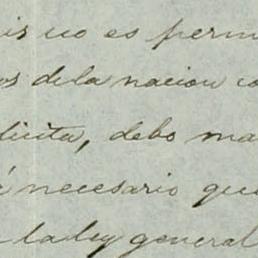 is no es perm
os de la nacion co
licita, debo ma
necesario que
la ley general